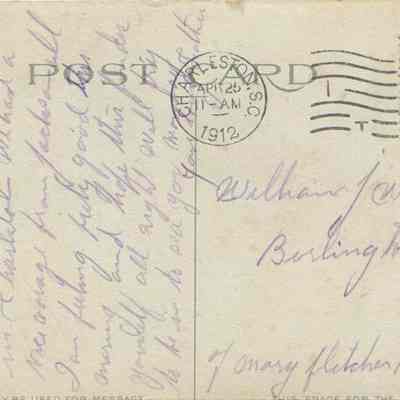 POST CARD
CHARLESTON, S.C.
APR 25
11-AM
1912
in Charleston we had a
nice voyage from Jacksonvill
I am feeling fully good this
morning and hope this finds
yourself all right will try
to be in to see you
your Mother
William J W
Borlington
% Mary Fletcher
BE USED FOR MESSAGE
THIS SPACE FOR THE